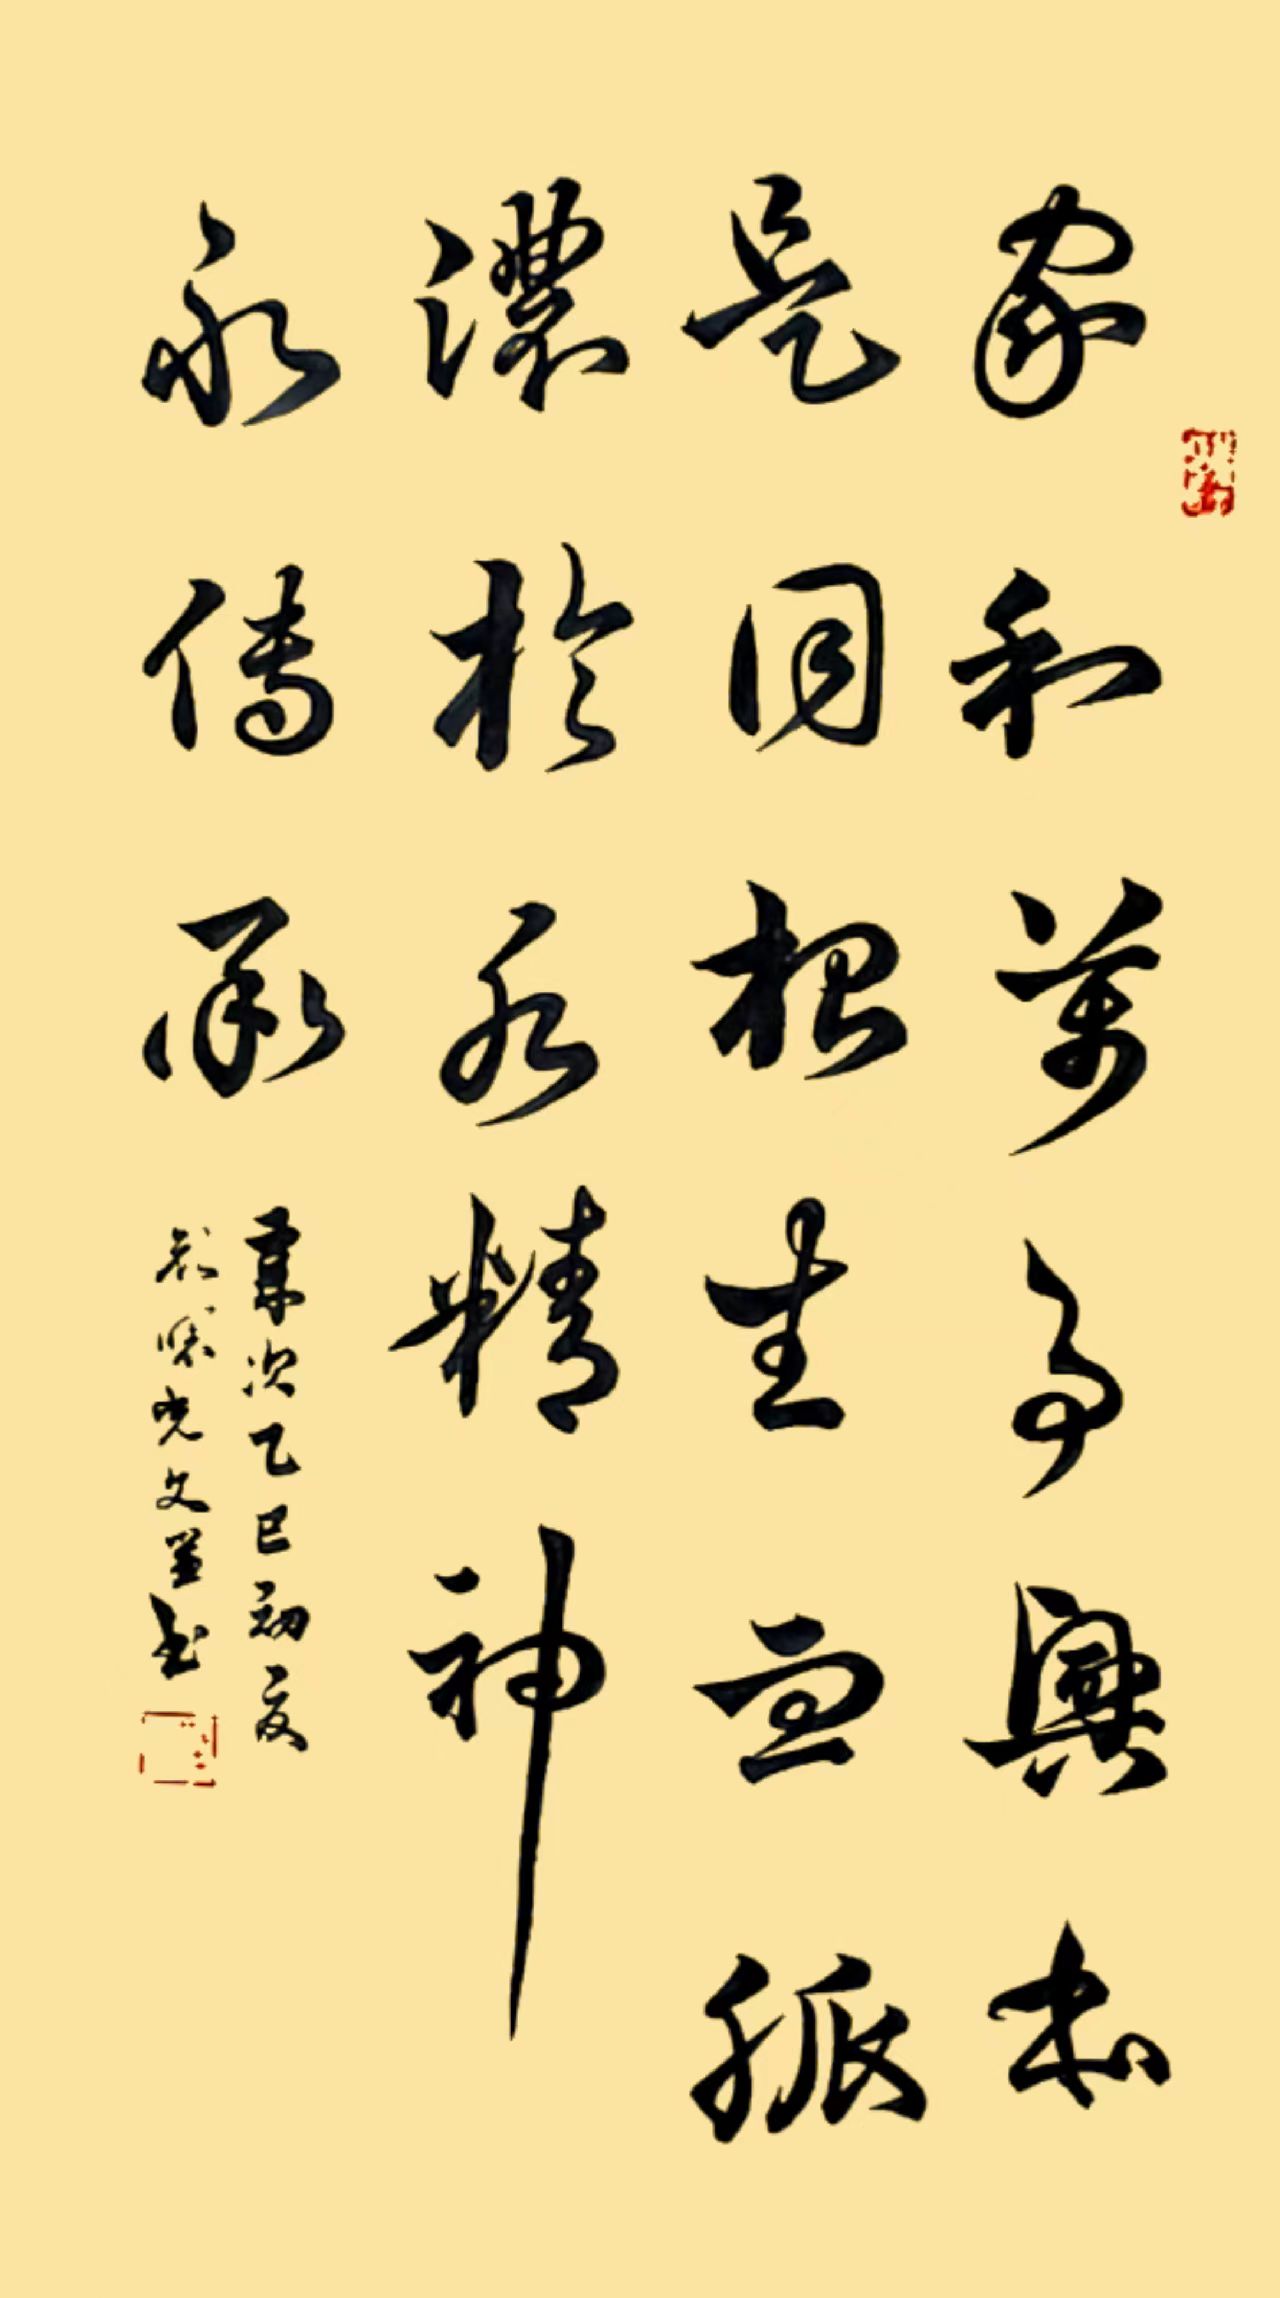 家和萬事興本
是同根生血脈
濃於水精神
永傳承
歲次乙巳初夏
文星書